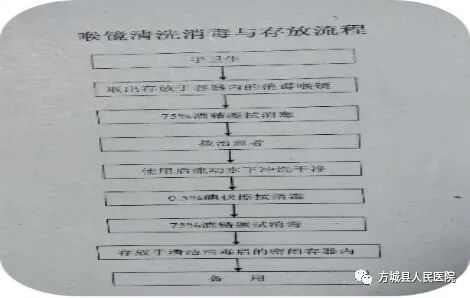 喉镜清洗消毒与存放流程
手卫生
取出存放于容器内的消毒喉镜
75%酒精擦拭消毒
救治患者
使用后流动水下冲洗干净
0.5%碘伏擦拭消毒
75%酒精擦拭消毒
存放于清洁消毒后的密闭容器内
备用
方城县人民医院